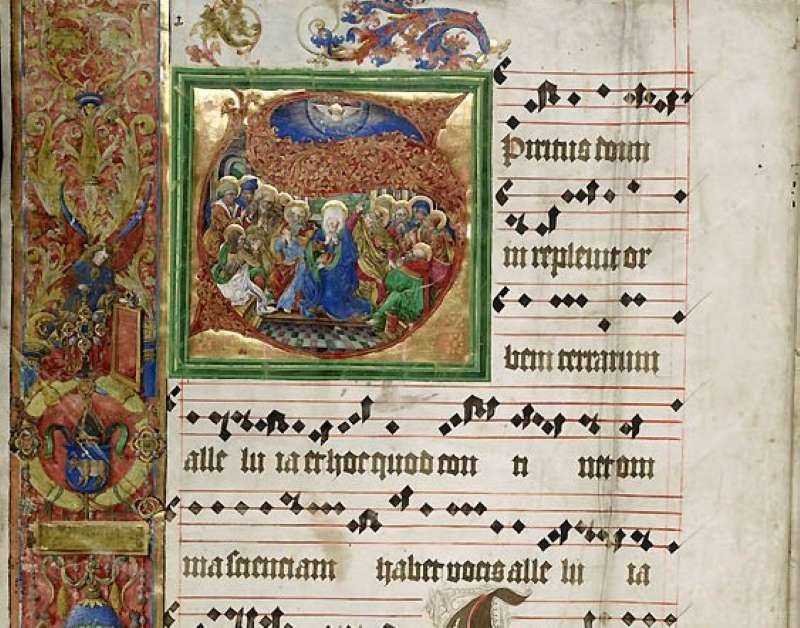 SPiritus domi
ni repleuit or
bem terrarum
alle lu ia et hoc quod con ti net om
nia scienciam habet vocis alle lu ia